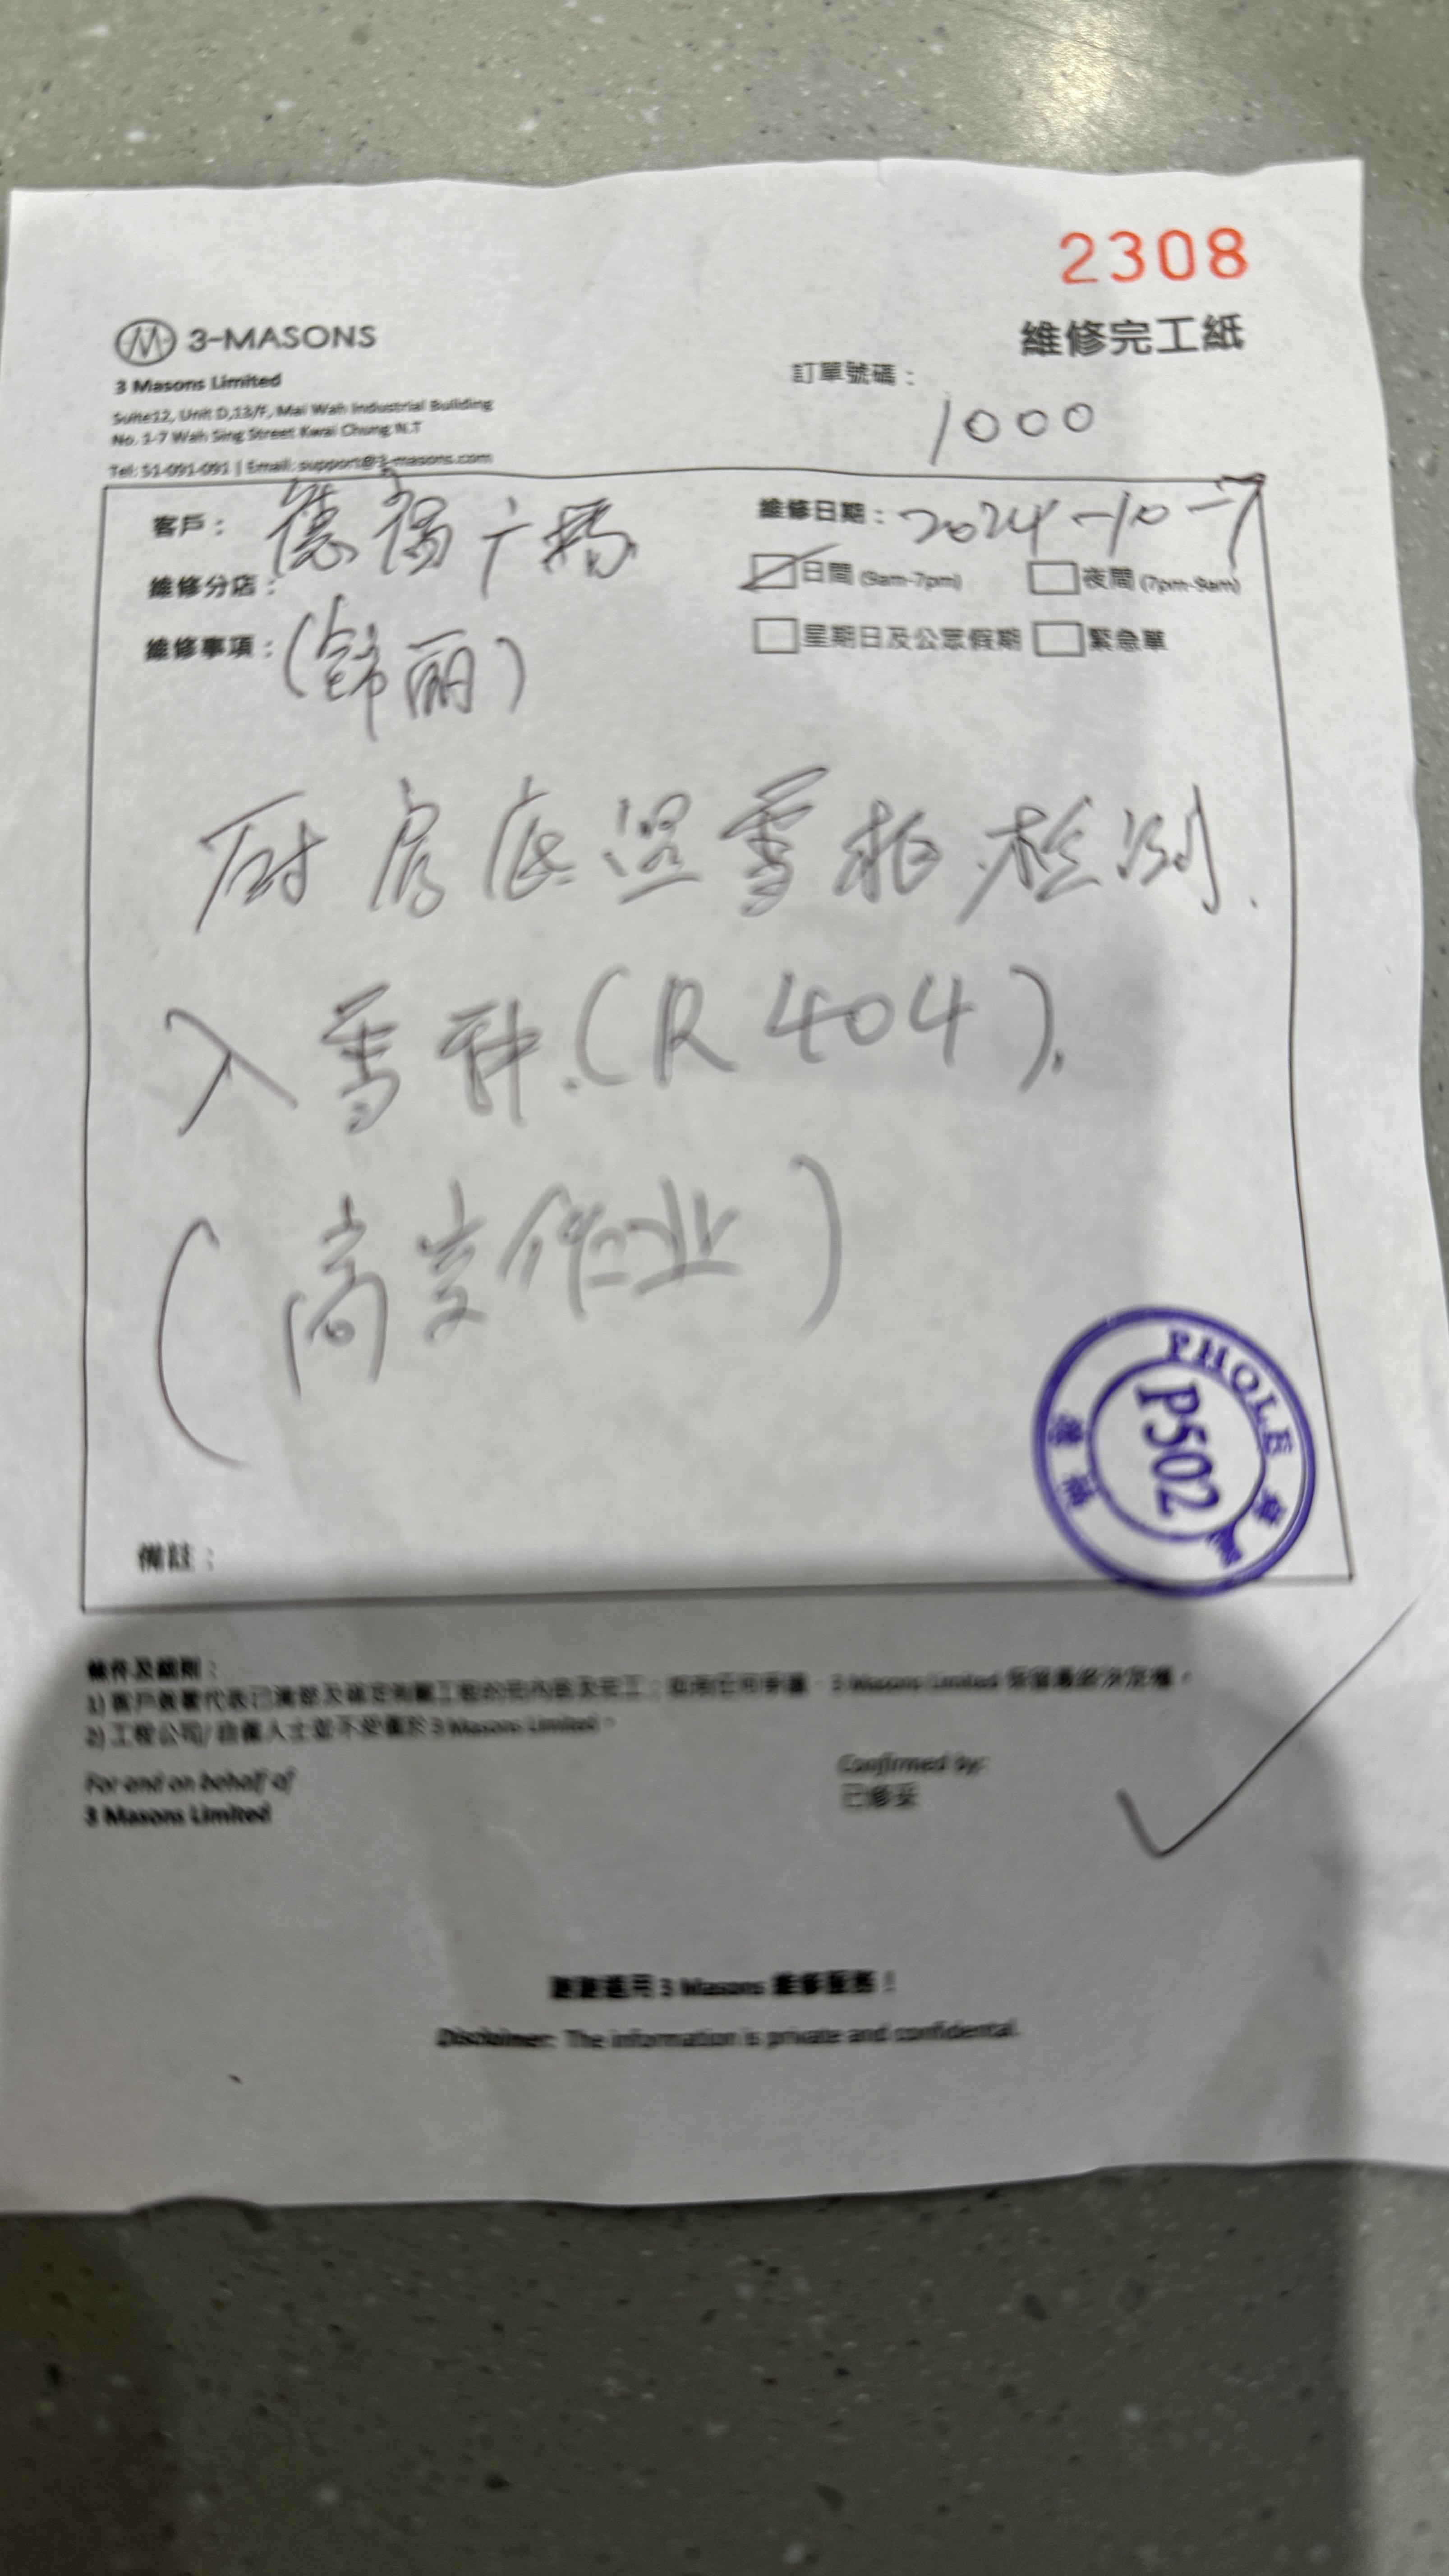 2308
3-MASONS
維修完工紙
3 Masons Limited
訂單號碼：
1000
Suite12, Unit D,13/F, Mai Wah Industrial Building
No. 1-7 Wah Sing Street Kwai Chung N.T
Tel: 51-091-091 | Email: support@3-masons.com
客戶： 德福广场
維修日期： 2024-10-7
維修分店：
日間 (9am-7pm) 夜間 (7pm-9am)
維修事項： (錦丽)
星期日及公眾假期 緊急單
厨房底温雪柜检测.
入雪种.(R404).
(高空作业)
PHOLE
P502
德福
備註：
條件及細則：
2) 工程公司/ 自僱人士並不受僱於 3 Masons Limited。
For and on behalf of
3 Masons Limited
Confirmed by:
已修妥
謝謝選用 3 Masons 維修服務！
Disclaimer: The information is private and confidental.